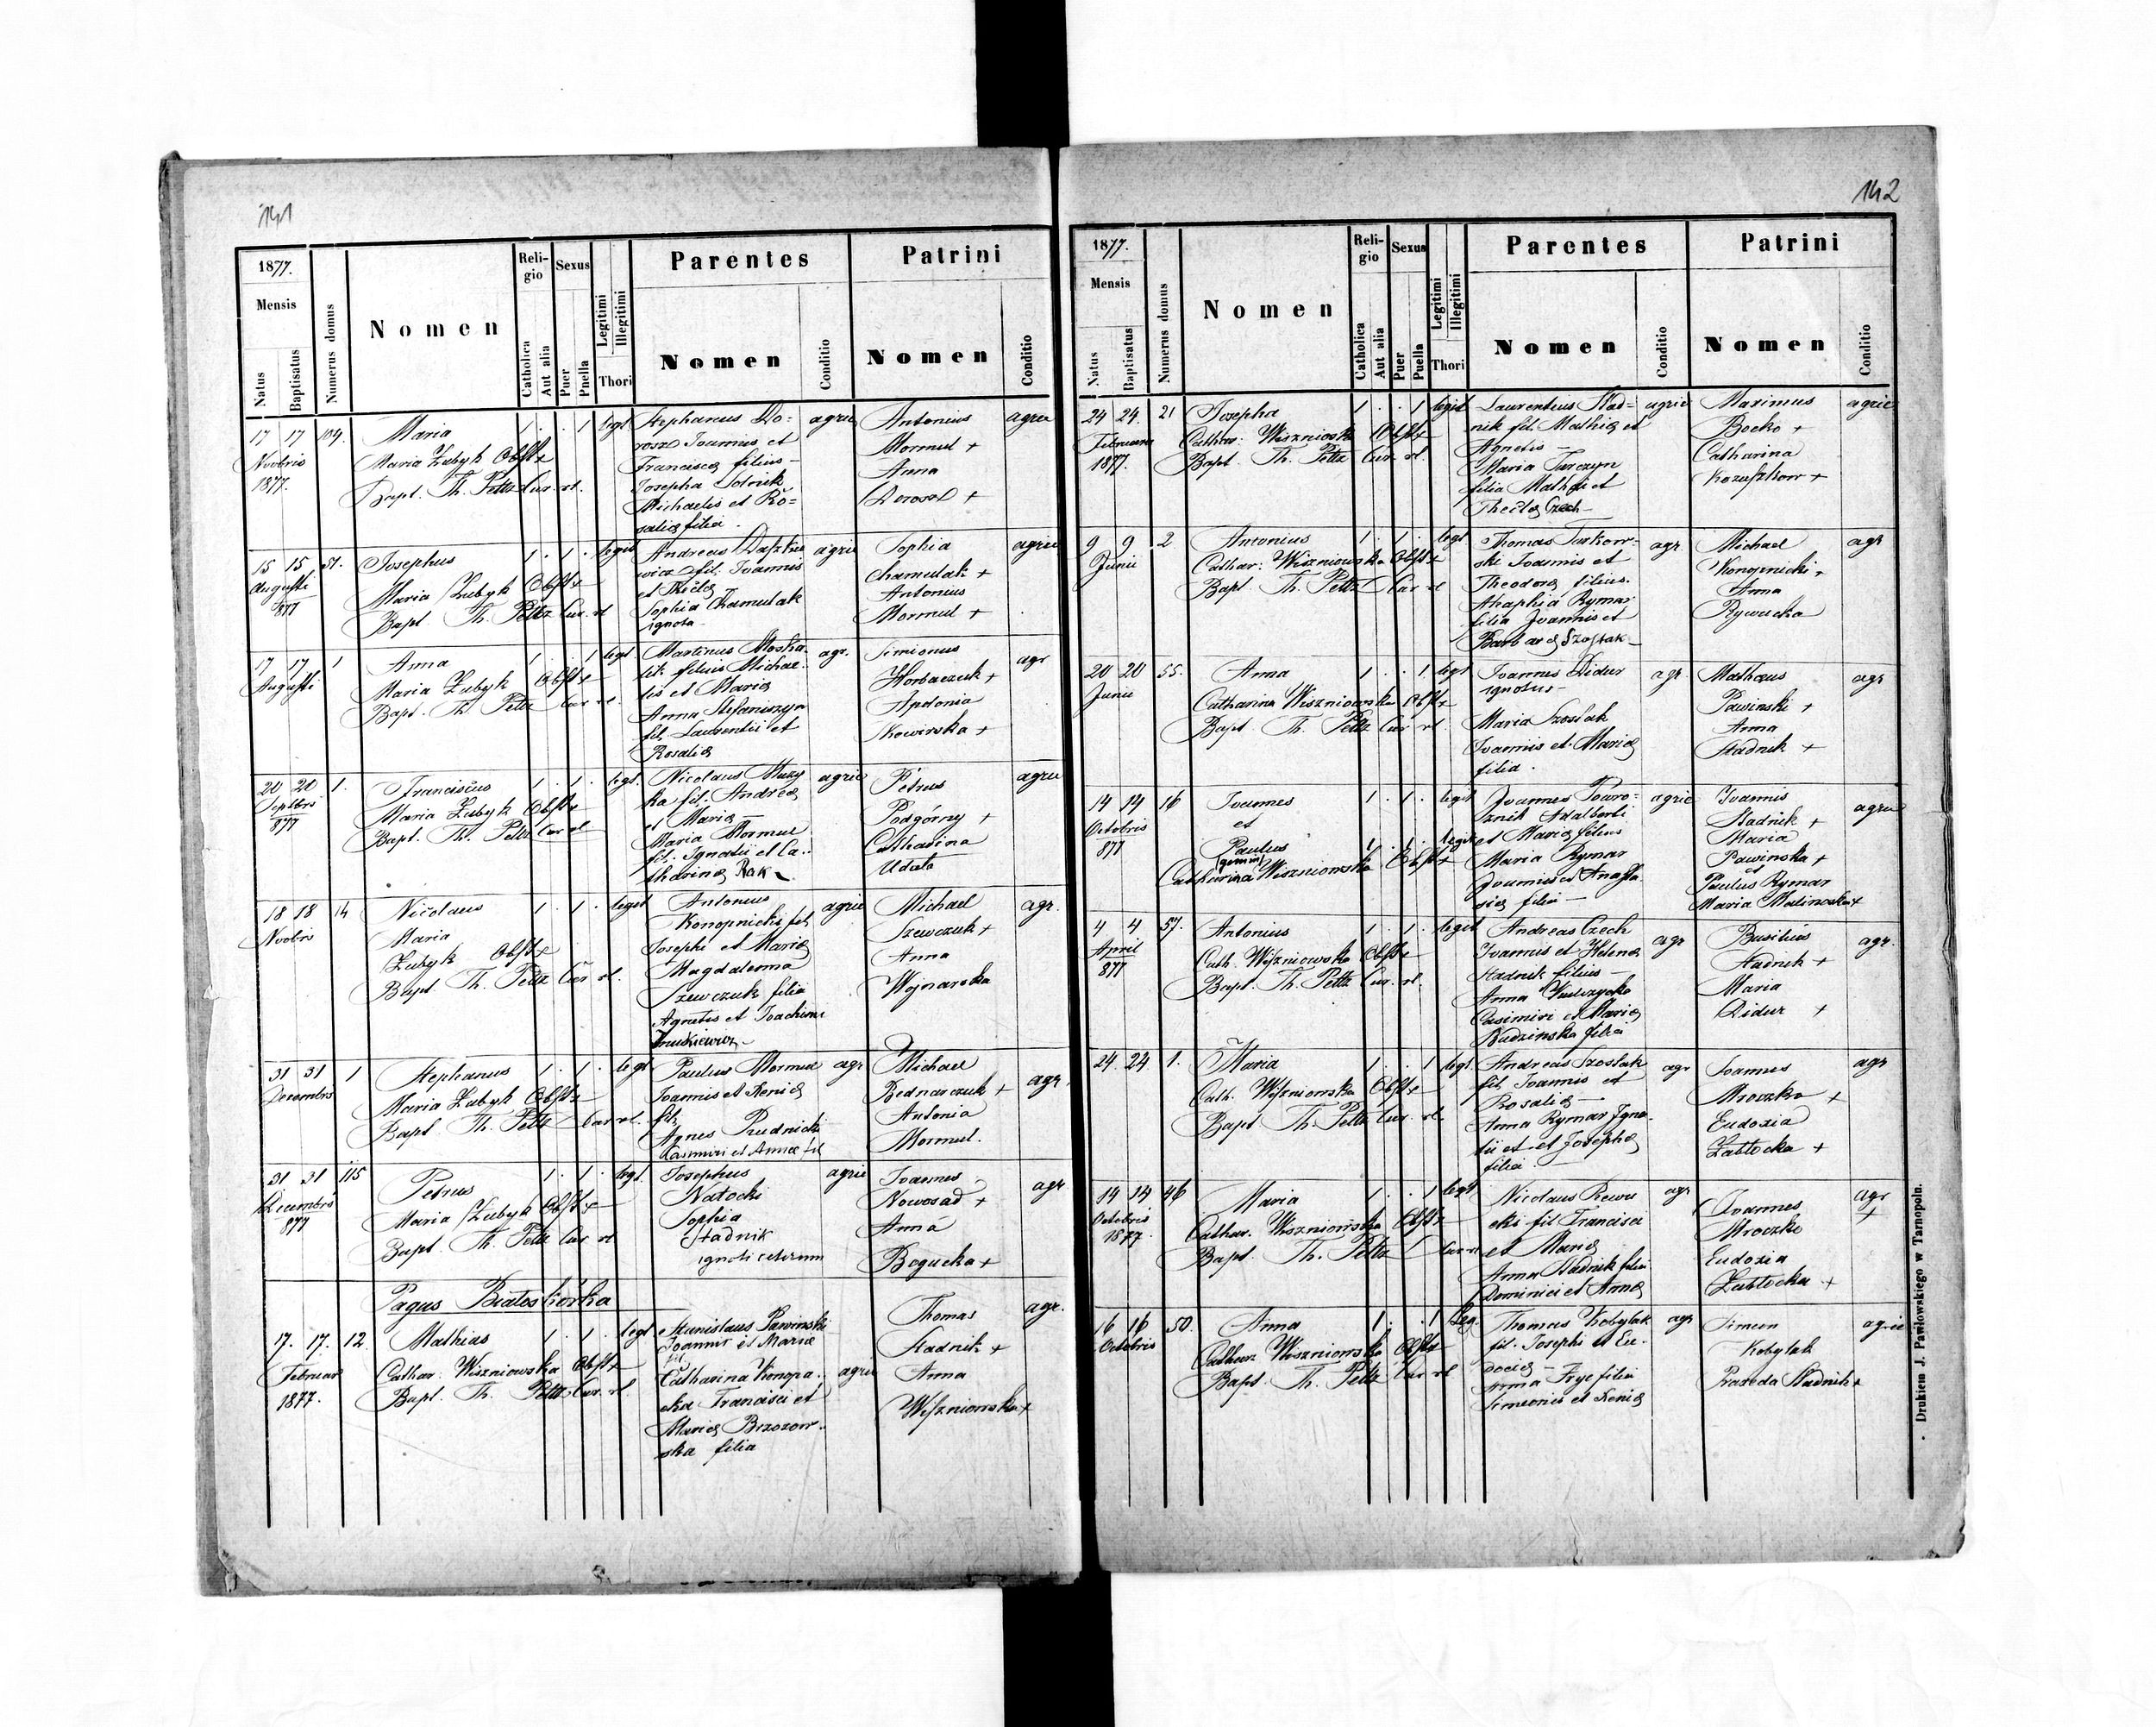 141
1877.
Mensis
Natus
Baptisatus
Numerus domus
Nomen
Religio
Catholica
Aut alia
Sexus
Puer
Puella
Legitimi
Illegitimi
Thori
Parentes
Nomen
Conditio
Patrini
Nomen
Conditio
17 17 104. Maria 1 . . 1 legt Stephanus Do- agric Antonius agric
Novbris Maria Zubyk Obst+ rosz Joannis et Mormul +
1877. Bapt. Th. Peltz Cur. rl. Francisca filius - Anna
Josepha Dorosz +
Michaelis et Ro-
salia filia.
15 15 51. Josephus 1 . 1 . legit Andreas agric Sophia agric
Augusti Maria Zubyk Obst+ wicz fil. Joannis Chamulak +
877 Bapt Th. Peltz Cur. rl et Antonius
Sophia Chamulak Mormul +
ignota
17 17 1 Anna 1 . . 1 legt Martinus Moska- agr. Simionus agr
Augusti Maria Zubyk Obst+ lik filius Michae- Horbaczuk +
Bapt. Th. Peltz Cur rl. lis et Maria Apolonia
Anna Stefaniszyn Kowirska +
fil. Laurentii et
Rosalia
20 20 1. Franciscus 1 . 1 . legt. Nicolaus Muzy agric Petrus agric
Septbris Maria Zubyk Obst+ ka fil. Andrea Podgórny +
877 Bapt. Th. Peltz Cur rl et Maria Catharina
Maria Mormul Udata
fil. Ignatii et Ca-
tharina Rak
18 18 14 Nicolaus 1 . 1 . legit Antonius agric Michael agr.
Novbris Maria Konopnicki fil. Szewczuk +
Zubyk Obst+ Josephi et Maria Anna
Bapt. Th. Peltz Cur rl. Magdalena Wojnarska
Szewczuk filia
Agnetis et Joachimi
31 31 1 Stephanus 1 . 1 . legt Paulus Mormul agr Michael agr.
Decembris Maria Zubyk Obst+ Joannis et Xenia Bednarczuk +
Bapt. Th. Peltz Cur rl. fil. Antonia
Agnes Rudnicki Mormul.
Casimiri et Annæ fil
31 31 115 Petrus 1 . 1 . legt. Josephus agric Joannes agr
Decembris Maria Zubyk Obst+ Natocki Nowosad +
877 Bapt. Th. Peltz Cur rl Sophia Anna
Stadnik Bogucka +
ignoti ceterum
Pagus Białoskórka
17. 17. 12. Mathias 1 . 1 . legt Stanislaus Pawinski Thomas agr.
Februar Cathar. Wiszniowska Obst+ Joannis et Maria fil. Stadnik +
1877. Bapt. Th. Peltz Cur. rl. Catharina Konopa- agric Anna
cka Francisci et Wiszniowska +
Maria Brzozow-
ska filia
142
1877.
Mensis
Natus
Baptisatus
Numerus domus
Nomen
Religio
Catholica
Aut alia
Sexus
Puer
Puella
Legitimi
Illegitimi
Thori
Parentes
Nomen
Conditio
Patrini
Nomen
Conditio
24 24. 21 Josepha 1 . . 1 legit Laurentius Stad- agric Maximus agric
Februar Cathar: Wiszniowska Obst+ nik fil. Mathia et Bocko +
1877. Bapt. Th. Peltz Cur. rl. Agnetis - Catharina
Maria Turczyn Kozuszkow +
filia Mathei et
Thecla Czech
9 9 2 Antonius 1 . 1 . legt Thomas Turkow- agr. Michael agr
Junii Cathar: Wiszniowska Obst+ ski Joannis et Konopnicki +
Bapt Th. Peltz Cur rl Theodora filius. Anna
Ahaphia Rymar Rywucka
filia Joannis et
Barbara Szostak
20 20 55. Anna 1 . . 1 legt Joannes Didur agr. Mathæus agr
Junii Catharina Wiszniowska Obst+ ignotus - Pawinski +
Bapt. Th. Peltz Cur rl. Maria Szostak Anna
Joannis et Maria Stadnik +
filia.
14 14 16 Joannes 1 . 1 . legit Joannes agric Joannis agric
Octobris et Adalberti Stadnik +
877 Paulus 1 . 1 . legit et Maria filius Maria
(gemini) Maria Rymar Pawinska +
Catharina Wiszniowska Obst+ Joannis et Anasta- et
sia filia - Paulus Rymar
Maria Malinoska +
4 4 57. Antonius 1 . 1 . legit Andreas Czech agr Basilius agr.
April Cath. Wiszniowska Obst+ Joannis et Helena Stadnik +
877 Bapt. Th. Peltz Cur. rl. Stadnik filius - Maria
Anna Didur +
Casimiri et Maria
Budzinska filia
24. 24 1. Maria 1 . . 1 legt. Andreas Szostak agr Joannes agr
Cath. Wiszniowska Obst+ fil Joannis et Mroczko +
Bapt Th. Peltz Cur. rl. Rosalia - Eudoxia
Anna Rymar Igna- Zabłocka +
tii et et Josepha
filia
14 14 46 Maria 1 . . 1 legt Nicolaus Rewu agr Joannes agr
Octobris Cathar. Wiszniowska Obst+ cki fil Francisci Mroczko +
1877. Bapt. Th. Peltz Cur rl et Maria Eudoxia
Anna Stadnik filia Zabłocka +
Dominici et Anna
16 16 50. Anna 1 . . 1 Leg. Thomas Kobylak agr Simeon agric
Octobris Cathar Wiszniowska Obst+ fil. Josephi et Eu- Kobylak
Bapt Th. Peltz Cur rl docia - Paraseda Stadnik +
Anna Fryc filia
Simeonis et Xenia
Drukiem J. Pawłowskiego w Tarnopolu.